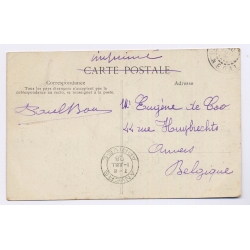 imprimé
CARTE POSTALE
Correspondance
Adresse
Tous les pays étrangers n'acceptent pas la
correspondance au recto, se renseigner à la poste.
Mr Eugène de Coo
44 rue Huybrechts
Anvers
Belgique